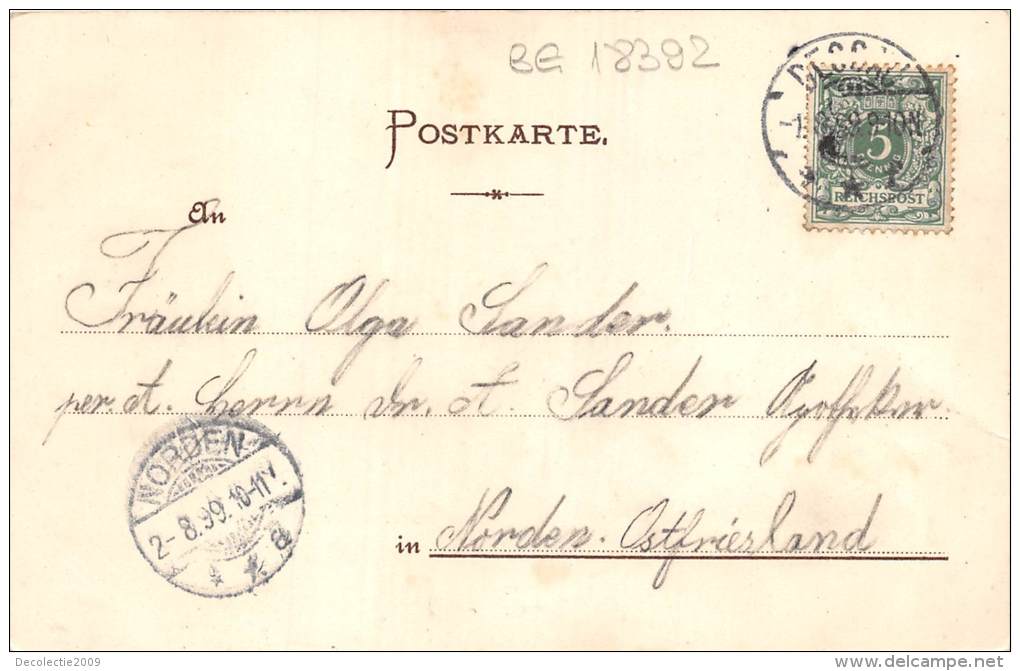 BG 18392
POSTKARTE.
5
PFENNIG
REICHSPOST
An
Fräulein Olga Sander.
per. A. Herrn Dr. A. Sander Apotheker
NORDEN
2-8.99.10-11V.
* * a
in Norden. Ostfriesland
Decolectie2009
delcampe.net